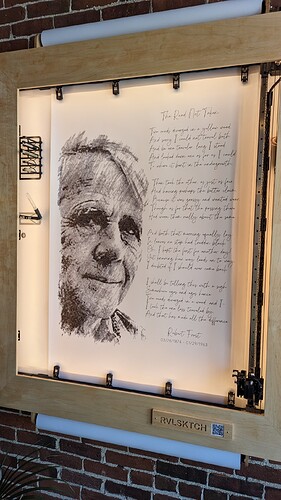 The Road Not Taken
Two roads diverged in a yellow wood
And sorry I could not travel both
And be one traveler long I stood
And looked down one as far as I could
To where it bent in the undergrowth
Then took the other as just as fair
And having perhaps the better claim
Because it was grassy and wanted wear
Though as for that the passing there
Had worn them really about the same
And both that morning equally lay
In leaves no step had trodden black
Oh I kept the first for another day
Yet knowing how way leads on to way
I doubted if I should ever come back
I shall be telling this with a sigh
Somewhere ages and ages hence
Two roads diverged in a wood and I
I took the one less traveled by
And that has made all the difference
Robert Frost
RVLSKTCH